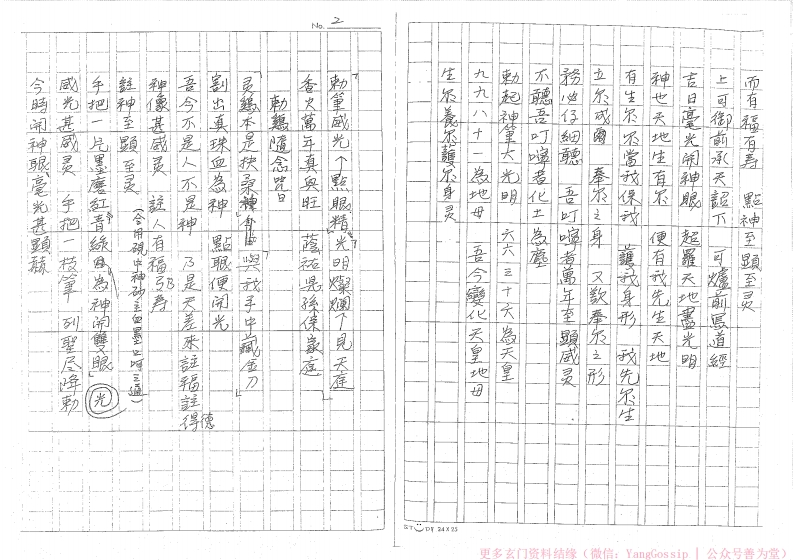 而有福有寿　點神至顕至灵
上可御前承天詔下　可爐前寫道經
吉日毫光開神眼　超羅天地盡光明
神也天地生有尔　便有我先生天地
有生尔不當我保我　護我身形　我先尔生
立尔成　奉尔之身　又歎奉尔之形
務必仔細聽　吾叮嚀者萬年至顕威灵
不聽吾叮嚀者化土為塵
勅起神筆大光明　六六三十六為天皇
九九八十一為地母　吾今變化天皇地母
生尔養尔護尔身灵
STUDY 24X25
No. 2
勅筆威光个點眼精光明燦爛下見天庭
香火萬年真興旺　蔭祐児孫保家庭
勅鷄隨念咒曰
灵鷄本是扶桑　與我手中藏金刀
割出真珠血為神　點眼便開光
吾今不是人不是神　乃是天差來註福註得德
神像甚威灵　註人有福与寿
註神至顕至灵
手把一片墨磨紅青綠為神開雙眼 光
威光甚威灵　手把一枝筆　列聖尽降勅
今時開神眼毫光甚顕赫
更多玄门资料结缘（微信：YangGossip | 公众号善为堂）